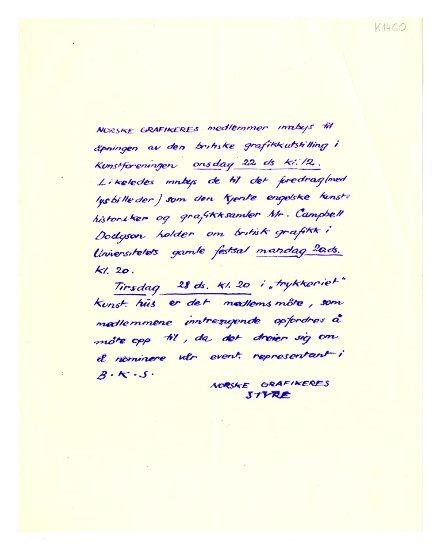 K1460
NORSKE GRAFIKERES medlemmer innbys til
åpningen av den britiske grafikkutstilling i
Kunstforeningen onsdag 22 ds kl. 12.
Likeledes innbys de til det foredrag (med
lysbilleder) som den kjente engelske kunst-
historiker og grafikksamler Mr. Campbell
Dodgson holder om britisk grafikk i
Universitetets gamle festsal mandag 20 ds.
kl. 20.
Tirsdag 28 ds. kl. 20 i „trykkeriet"
Kunst hus er det medlemsmøte, som
medlemmene inntrengende opfordres å
møte opp til, da det dreier sig om
å nominere vår event. representant i
B.K.S.
NORSKE GRAFIKERES
STYRE